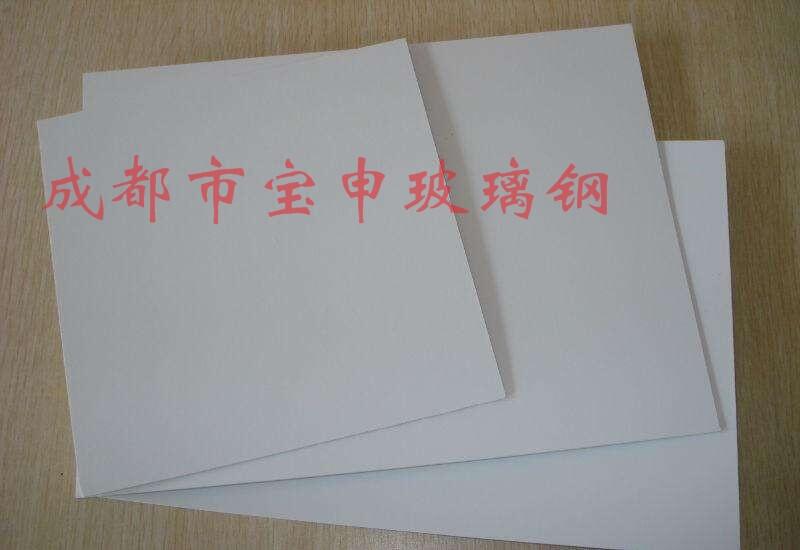 成都市宝申玻璃钢